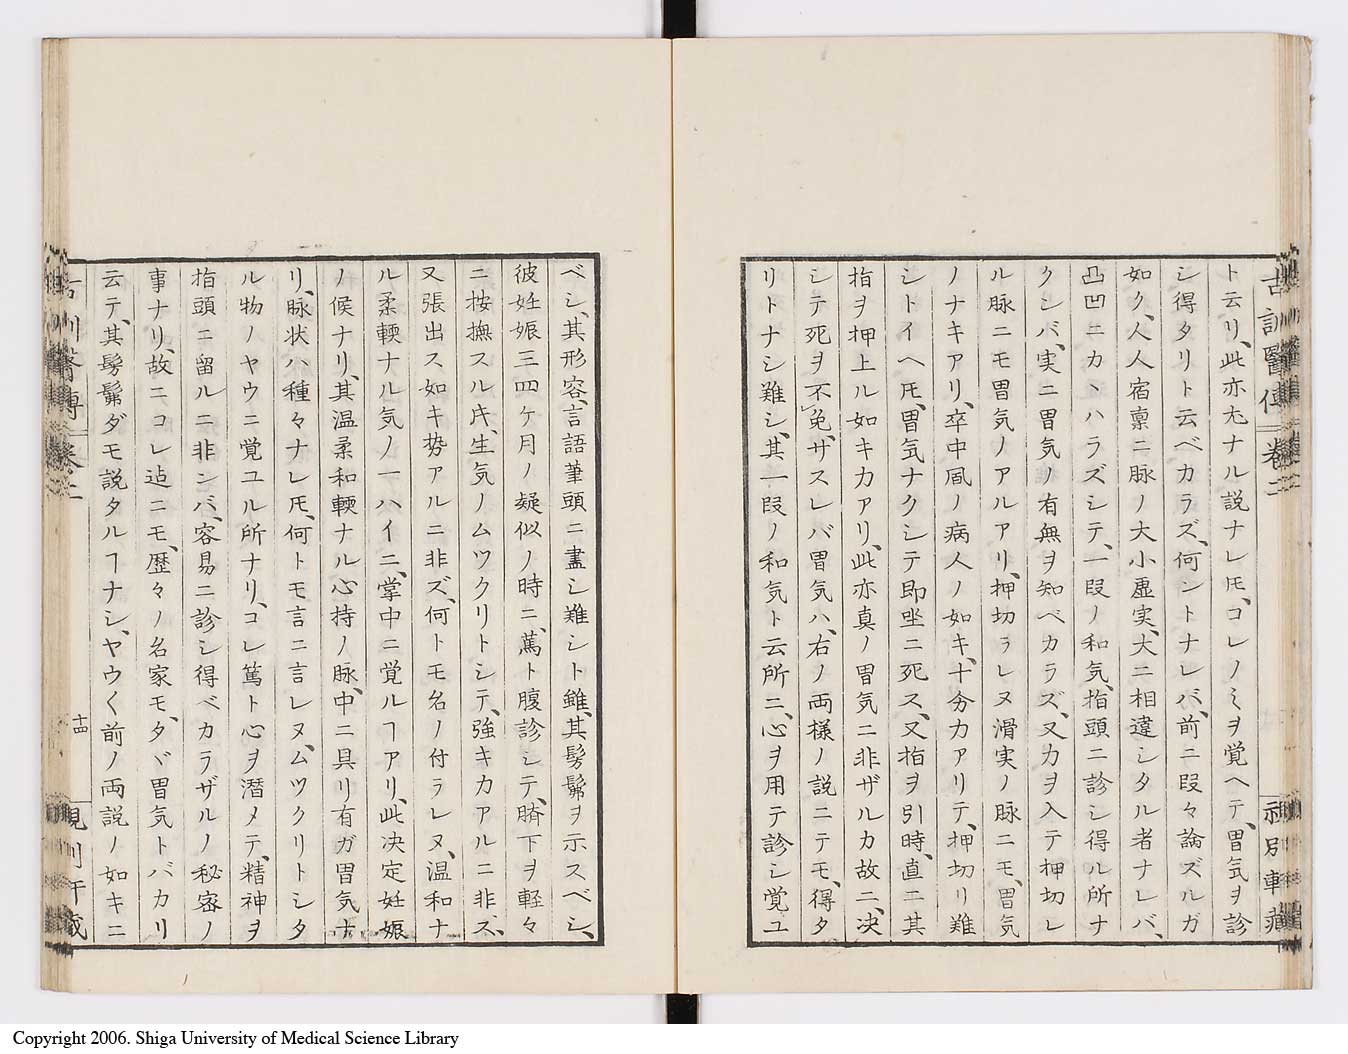 ト云リ、此亦尤ナル説ナレ𪜈、コレノミヲ覚ヘテ、胃気ヲ診
シ得タリト云ベカラズ、何ントナレバ、前ニ段々論ズルガ
如ク、人人宿禀ニ脉ノ大小虚実、大ニ相違シタル者ナレバ、
凸凹ニカヽハラズシテ、一段ノ和気、指頭ニ診シ得ル所ナ
クンバ、実ニ胃気ノ有無ヲ知ベカラズ、又力ヲ入テ押切レ
ル脉ニモ胃気ノアルアリ、押切ラレヌ滑実ノ脉ニモ、胃気
ノナキアリ、卒中風ノ病人ノ如キ、十分力アリテ、押切リ難
シトイヘ𪜈、胃気ナクシテ即坐ニ死ス、又指ヲ引時、直ニ其
指ヲ押上ル如キ力アリ、此亦真ノ胃気ニ非ザルカ故ニ、决
シテ死ヲ不免、サスレバ胃気ハ、右ノ両様ノ説ニテモ、得タ
リトナシ難シ、其一段ノ和気ト云所ニ、心ヲ用テ診シ覚ユ
古訓醫傳 卷二
ベシ、其形容、言語筆頭ニ盡シ難シト雖、其髣髴ヲ示スベシ、
彼妊娠三四ヶ月ノ疑似ノ時ニ、篤ト腹診シテ、臍下ヲ軽々
ニ按撫スル片、生気ノムツクリトシテ、強キカアルニ非ズ、
又張出ス如キ勢アルニ非ズ、何トモ名ノ付ラレヌ、温和ナ
ル柔輭ナル気ノ一ハイニ、掌中ニ覚ルヿアリ、此决定妊娠
ノ候ナリ、其温柔和輭ナル心持ノ脉、中ニ具リ有ガ胃気ナ
リ、脉状ハ種々ナレ𪜈、何トモ言ニ言レヌ、ムツクリトシタ
ル物ノヤウニ覚ユル所ナリ、コレ篤ト心ヲ潜メテ、精神ヲ
指頭ニ留ルニ非ンバ、容易ニ診シ得ベカラザルノ秘密ノ
事ナリ、故ニコレ迠ニモ、歴々ノ名家モ、タヾ胃気トバカリ
云テ、其髣髴ダモ説タルヿナシ、ヤウ〱前ノ両説ノ如キニ
古訓醫傳 卷二 十四